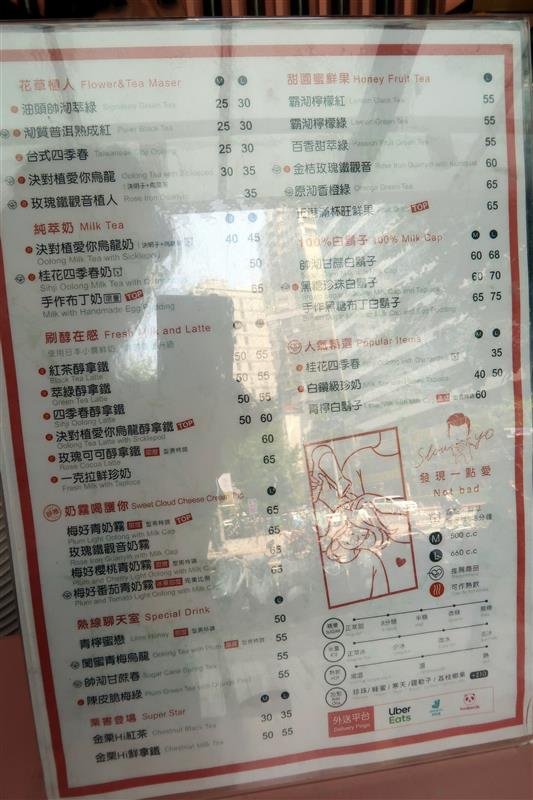 花草植人 Flower&Tea Maser M L
油頭帥沏萃綠 Signature Green Tea 25 30
沏質普洱熟成紅 Puer Black Tea 25 30
台式四季春 Taiwanese Sihji Oolong 25 30
決對植愛你烏龍 Oolong Tea with Sicklepod 30 35
玫瑰鐵觀音植人 Rose Iron Guanyin 35
純萃奶 Milk Tea M L
決對植愛你烏龍奶 40 45
Oolong Milk Tea with Sicklepod
桂花四季春奶 50
Sihji Oolong Milk Tea with Osmanthus
手作布丁奶 TOP 60
Milk with Handmade Egg Pudding
刷醇在感 Fresh Milk and Latte M L
紅茶醇拿鐵 50 55
Black Tea Latte
萃綠醇拿鐵 50 55
Green Tea Latte
四季春醇拿鐵 50 60
Sihji Oolong Latte
決對植愛你烏龍醇拿鐵 TOP 60
Oolong Tea Latte with Sicklepod
玫瑰可可醇拿鐵 60
Rose Cocoa Latte
一克拉鮮珍奶 65
Fresh Milk with Tapioca
奶霧喝護你 Sweet Cloud Cheese Cream
梅好青奶霧 TOP 65
Plum Light Oolong with Milk Cap
玫瑰鐵觀音奶霧 65
Rose Iron Guanyin with Milk Cap
梅好櫻桃青奶霧 65
Plum and Cherry Light Oolong with Milk Cap
梅好番茄青奶霧 65
Plum and Tomato Light Oolong with Milk Cap
熱線聊天室 Special Drink L
青檸蜜戀 Lime Honey 50
閨蜜青梅烏龍 Oolong Tea with Plum 55
帥沏甘蔗春 Sugar Cane Spring Tea 55
陳皮脆梅綠 55
栗害登場 Super Star M L
金栗Hi紅茶 Chestnut Black Tea 30 35
金栗Hi鮮拿鐵 Chestnut Milk Tea 50 55
甜圓蜜鮮果 Honey Fruit Tea L
霸沏檸檬紅 Lemon Black Tea 55
霸沏檸檬綠 Lemon Green Tea 55
百香甜萃綠 Passion Fruit Green Tea 55
金桔玫瑰鐵觀音 Rose Iron Guanyin with Kumquat 60
原沏香橙綠 Orange Green Tea 65
正港滿杯旺鮮果 TOP 65
100%白鬍子 100% Milk Cap M L
帥沏甘蔗白鬍子 60 68
黑糖珍珠白鬍子 60 70
手作黑糖布丁白鬍子 65 75
人氣精選 Popular Items M L
桂花四季春 35
白鑽級珍奶 40 50
青檸白鬍子 60
發現一點愛
Not bad
M 500 c.c
L 660 c.c
推薦商品
可作熱飲
甜度 SUGAR 正常甜 8分糖 半糖 微糖 無糖
冰量 ICE 正常冰 少冰 去冰
溫 熱
珍珠/蜂蜜/寒天/蘆薈 +$10
外送平台
Delivery
Uber Eats
foodpanda